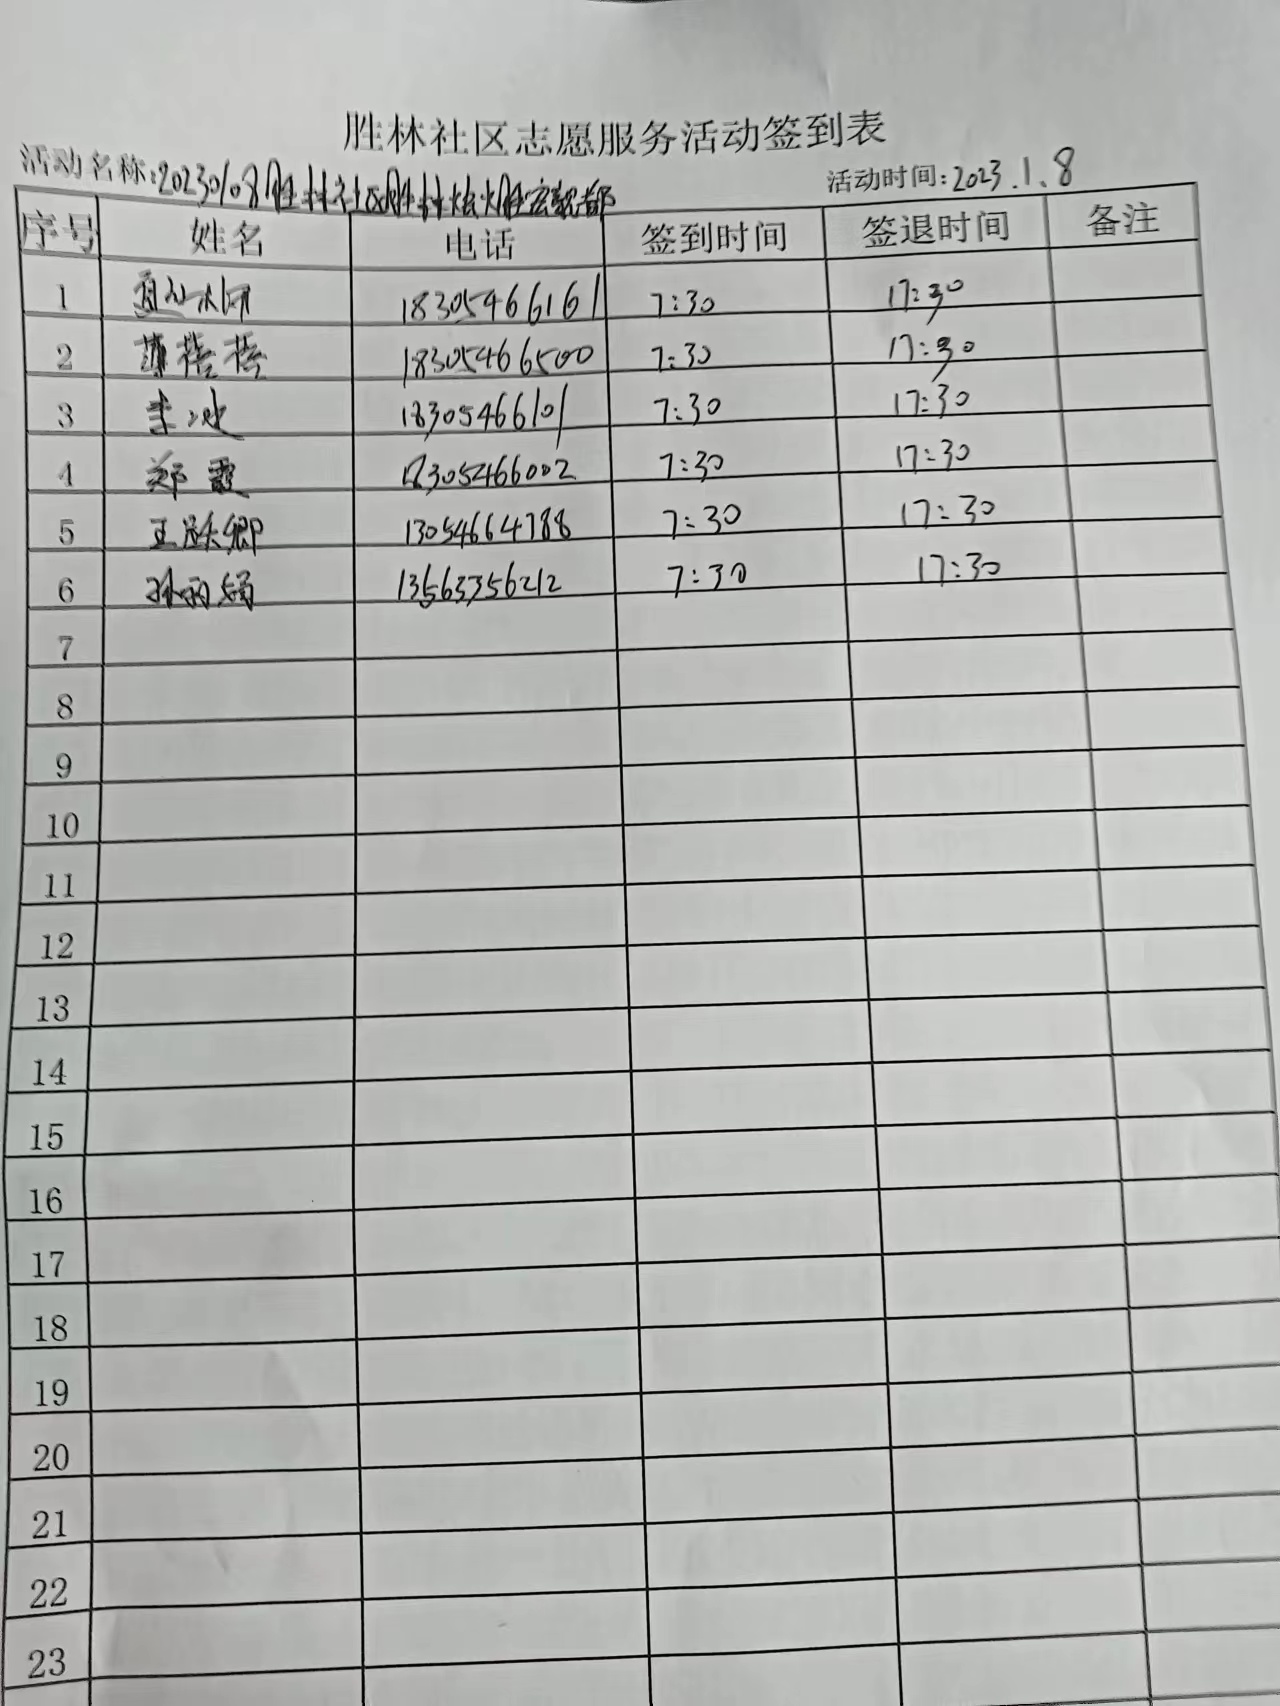 胜林社区志愿服务活动签到表
活动名称:20230108胜林社区胜林 胜宏 都
活动时间:2023.1.8
序号 姓名 电话 签到时间 签退时间 备注
1 18305466161 7:30 17:30
2 薄蓓蓓 18305466500 7:30 17:30
3 李冰 18305466101 7:30 17:30
4 郑霞 18305466002 7:30 17:30
5 王跃卿 13054664788 7:30 17:30
6 孙丽娟 13563356212 7:30 17:30
7
8
9
10
11
12
13
14
15
16
17
18
19
20
21
22
23